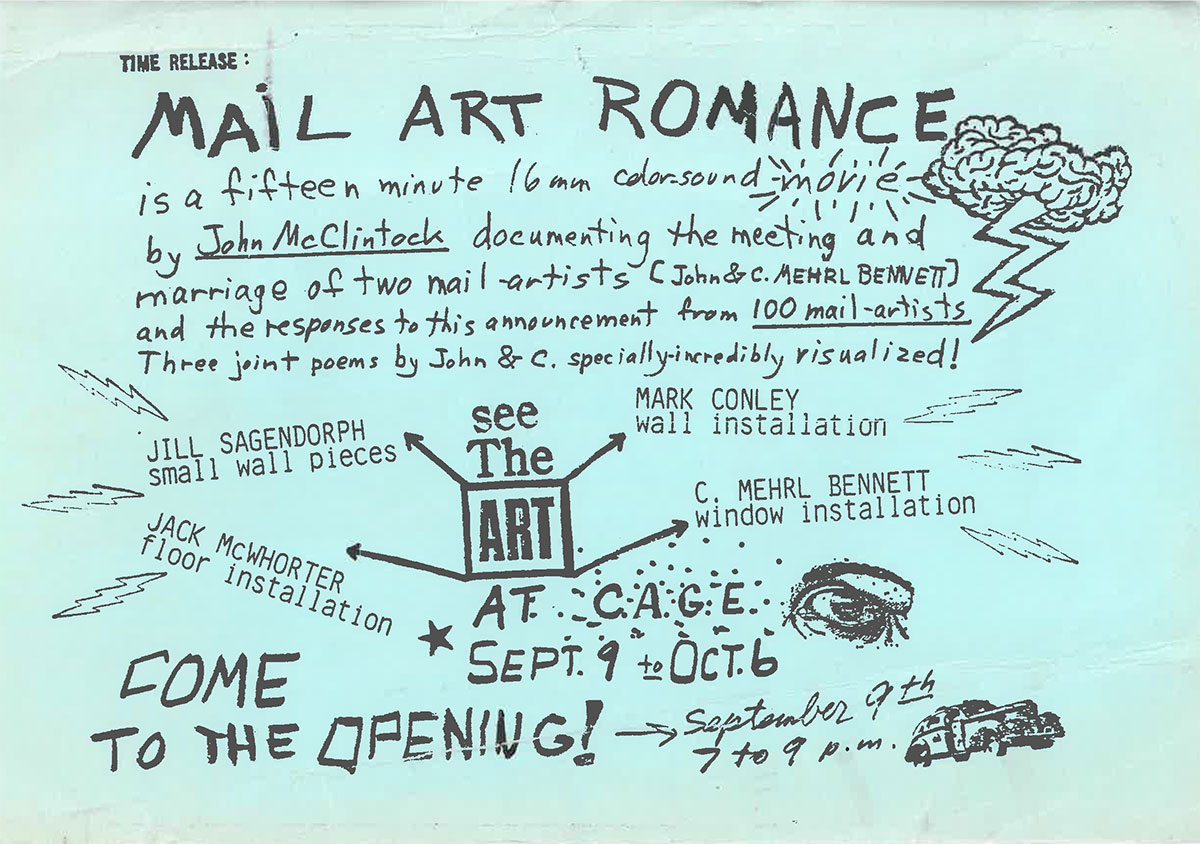 TIME RELEASE:
MAiL ART ROMANCE
is a fifteen minute 16mm color-sound movie
by John McClintock documenting the meeting and
marriage of two mail-artists [John & C. MEHRL BENNETT]
and the responses to this announcement from 100 mail-artists
Three joint poems by John & C. specially-incredibly visualized!
see
The
ART
JILL SAGENDORPH
small wall pieces
MARK CONLEY
wall installation
JACK McWHORTER
floor installation
C. MEHRL BENNETT
window installation
AT C.A.G.E.
SEPT. 9 to OCT. 6
COME
TO THE OPENING!
September 9th
7 to 9 p.m.